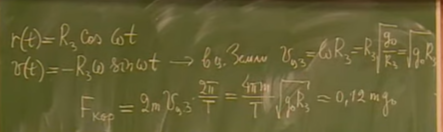 r(t) = R₃ cos ωt
v(t) = -R₃ω sin ωt → в ц. Земли v_цз = ωR₃ = R₃√(g₀/R₃) = √(g₀R₃)
F_кор = 2m v_цз · 2π/T = 4πm/T √(g₀R₃) ≈ 0,12 mg₀